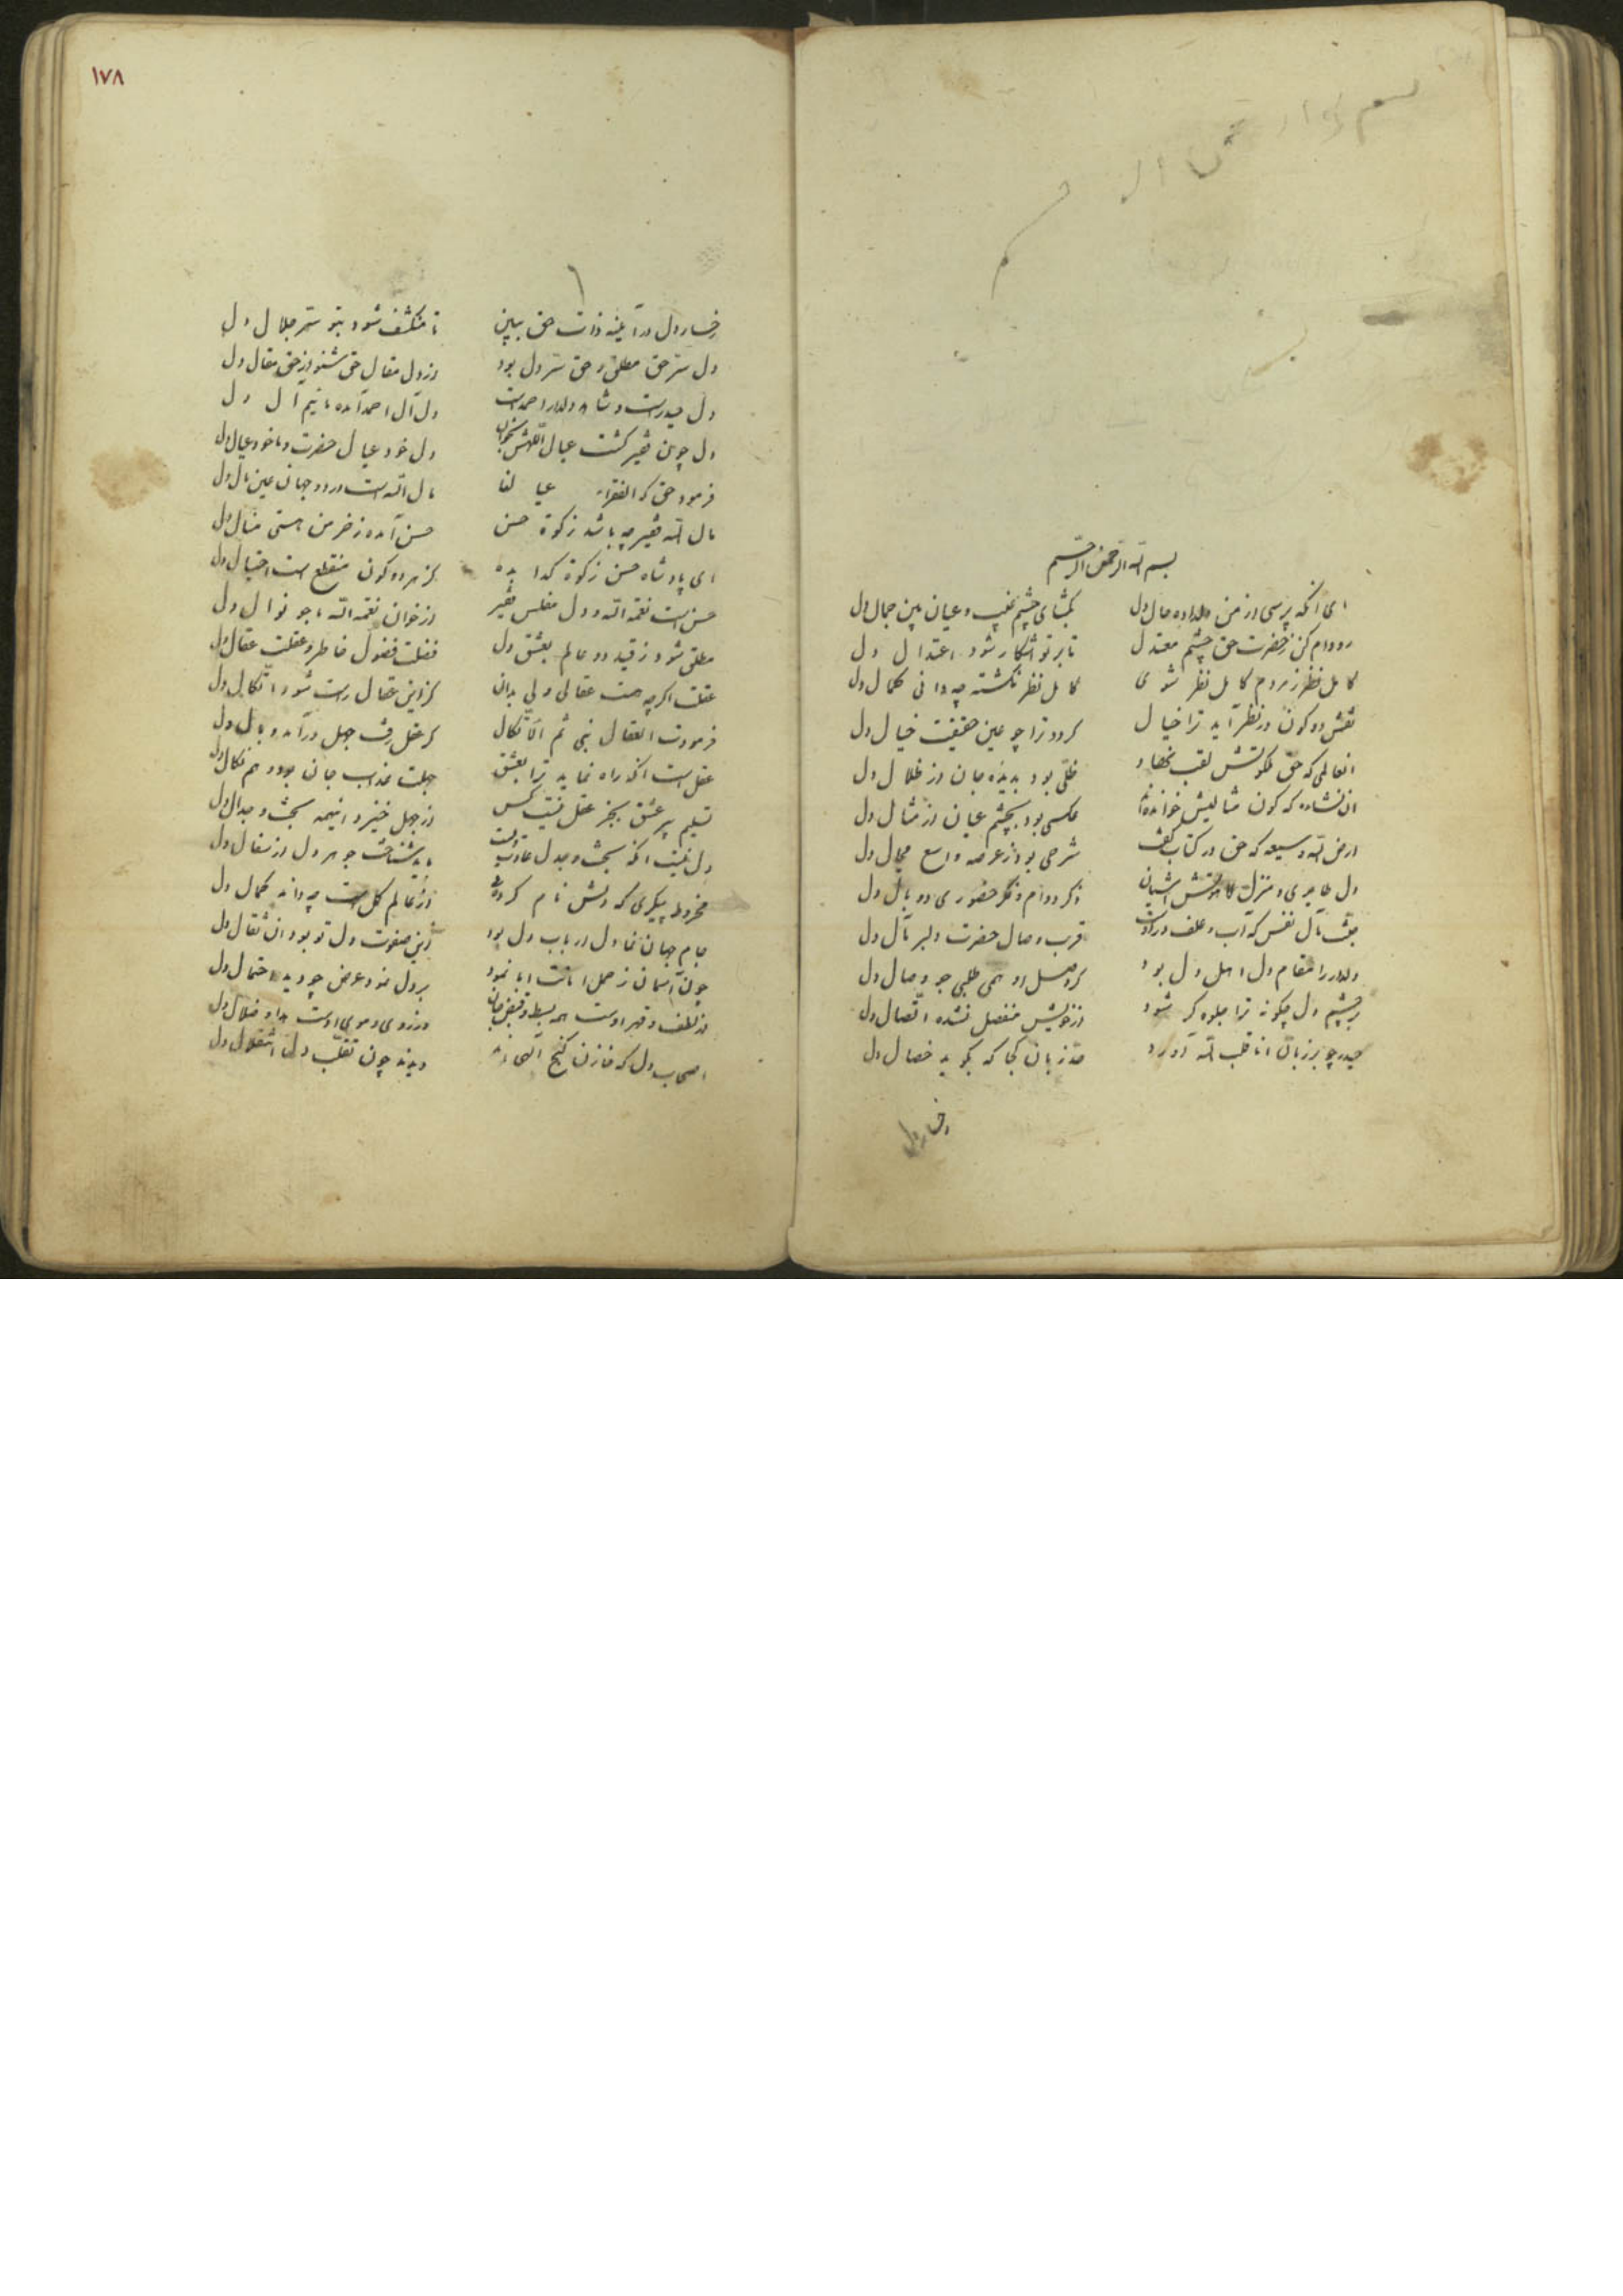 بسم الله الرحمن الرحیم
ای آنکه پرسی از من دلداده حال دل
بگشای چشم غیب و عیان بین جمال دل
رو وام کن ز حضرت حق چشم معتدل
تا بر تو آشکار شود اعتدال دل
کامل نظر ز مردم کامل نظر شوی
کامل نظر نگشته چه دانی کمال دل
نقش دو کون در نظر آید ترا خیال
گردد ترا چو عین حقیقت خیال دل
انعالمی که حق ملکوتش لقب نهاد
ظلی بود بدیده جان از ظلال دل
ان نشاءه که کون مثالیش خوانده
عکسی بود بچشم عیان از مثال دل
ارض الله وسیعه که حق در کتاب گفت
شرحی بود از عرصه واسع مجال دل
دل طایری و منزل آشیان
ذکر دوام و فکر حضوری دو بال دل
مآل نفس که آب و علف
قرب وصال حضرت دلبر مآل دل
دلدار را مقام دل اهل دل بود
گر وصل او همی طلبی جو وصال دل
بر چشم دل چگونه ترا جلوه گر شود
از خویش منفصل نشده اتصال دل
حیدر چو بر زبان انا قلب الله آورد
زبان کجا که بگوید خصال دل
رخسار دل
١٧٨
رخسار دل در آینه ذات حق ببین
تا منکشف شود بتو سر جلال دل
دل سر حق مطلق و حق سر دل بود
از دل مقال حق شنو از حق مقال دل
دل حیدرست و شاه دلدار احمدست
دل آل احمد آمده ما نیم آل دل
دل چون فقیر گشت عیال اللهش بخوان
دل خود عیال حضرت و ما خود عیال دل
فرمود حق که الفقراء عیا لنا
مال الله است در دو جهان عین مال دل
مال الله فقیر چه باشد زکوة حسن
حسن آمده ز خرمن هستی منال دل
ای پادشاه حسن زکوة گدا بده
کز هر دو کون منقطع است احتیال دل
حسن است نعمة الله و دل مفلس فقیر
از خوان نعمه الله ما جو نوال دل
مطلق شود ز قید دو عالم بعشق دل
فضلت فضول خاطر و عقلت عقال دل
عقلت اگر چه هست عقالی ولی بدان
کز این عقال راست شود اتکال دل
فرمودت اعقال نبی ثم الاتکال
گر عقل رفت جهل درآمد وبال دل
عقل است آنکه راه نماید ترا بعشق
جهلت عذاب جان بود و هم نکال دل
تسلیم پیر عشق بجز عقل نیست کس
از جهل خیزد اینهمه بحث و جدال دل
دل نیست آنکه بحث و جدل عادت
نشناخت جوهر دل از سفال دل
مخروط پیکری که دلش نام کرده
از عالم گل است چه داند کمال دل
جام جهان نما دل ارباب دل بود
این صنوبرت دل تو بود آن ثقال دل
چون آسمان ز حمل امانت ابا نمود
بر دل نمود عرض چو دید احتمال دل
لطف و قهر اوست همه بسط و قبض جان
از روی و موی اوست هدی و ضلال دل
اصحاب دل که خازن گنج الهی اند
دیدند چون تقلب دل انتقال دل